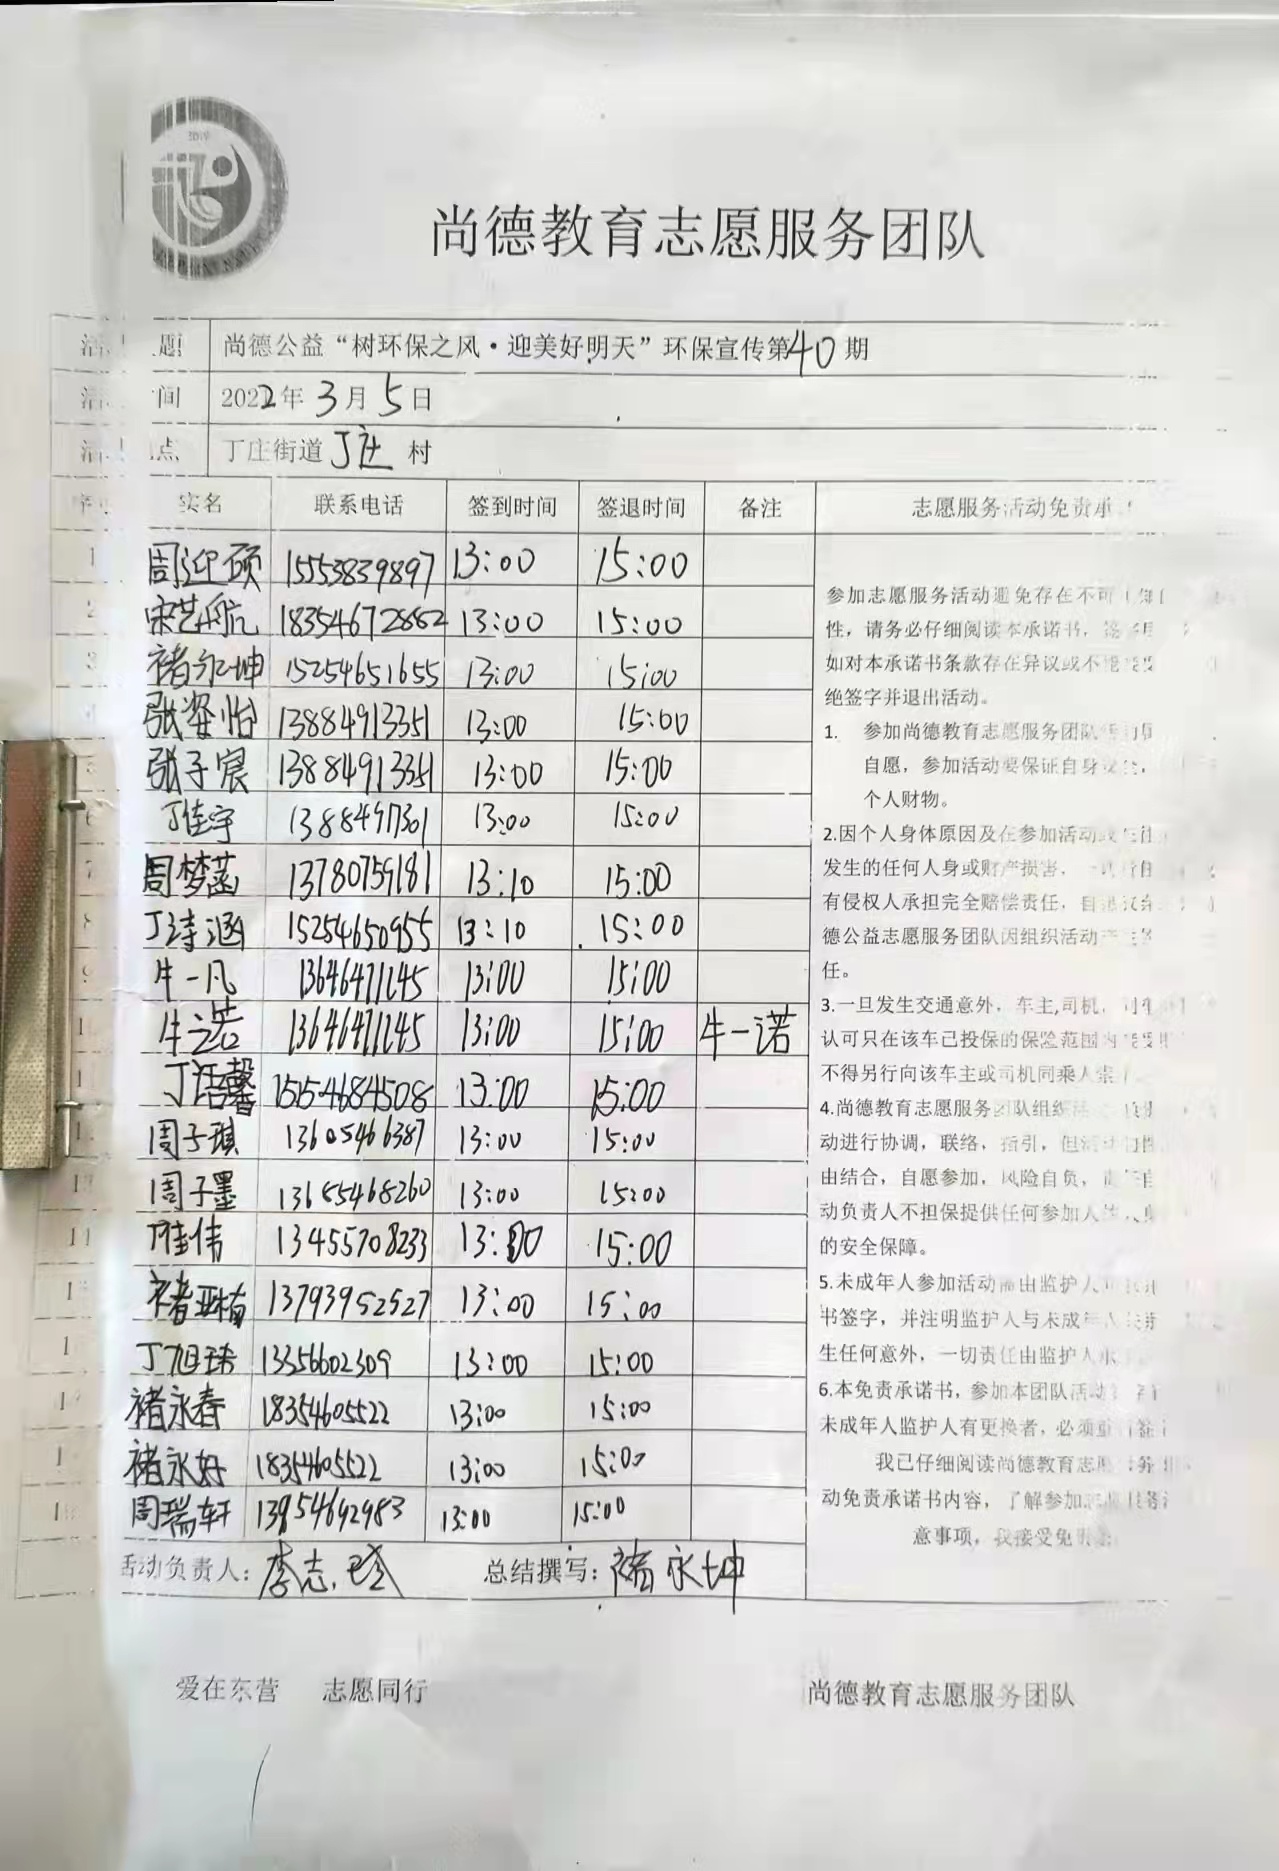 尚德教育志愿服务团队
题 尚德公益“树环保之风·迎美好明天”环保宣传第40期
间 2022年3月5日
点 丁庄街道丁庄村
实名 联系电话 签到时间 签退时间 备注 志愿服务活动免责承
1 周迎硕 15553839897 13:00 15:00
2 宋艺航 18354672882 13:00 15:00
3 褚永坤 15254651655 13:00 15:00
张姿怡 13884913351 13:00 15:00
张子宸 13884913351 13:00 15:00
6 丁佳宇 13:00 15:00
7 周梦菡 13780759181 13:10 15:00
8 丁诗涵 15254650955 13:10 15:00
9 牛一凡 13646471145 13:00 15:00
牛一诺 13646471145 13:00 15:00 牛一诺
丁语馨 15154684508 13:00 15:00
周子琪 13605466387 13:00 15:00
13 周子墨 13655468260 13:00 15:00
14 丁佳伟 13455708233 13:00 15:00
褚亚楠 13793952527 13:00 15:00
丁旭 13:00 15:00
褚永春 18354605522 13:00 15:00
褚永好 18354605522 13:00 15:00
周瑞轩 13954692983 13:00 15:00
活动负责人：李志 总结撰写：褚永坤
参加志愿服务活动避免存在不可
性，请务必仔细阅读本承诺书，
如对本承诺书条款存在异议或不
绝签字并退出活动。
1. 参加尚德教育志愿服务团队
自愿，参加活动要保证自身安全，
个人财物。
2.因个人身体原因及在参加活动或
发生的任何人身或财产损害，一
有侵权人承担完全赔偿责任，自
德公益志愿服务团队因组织活动产生
任。
3.一旦发生交通意外，车主,司机，
认可只在该车已投保的保险范围内
不得另行向该车主或司机同乘人索
4.尚德教育志愿服务团队组织活
动进行协调，联络，指引，但活动
由结合，自愿参加，风险自负，
动负责人不担保提供任何参加人
的安全保障。
5.未成年人参加活动需由监护人
书签字，并注明监护人与未成年人
生任何意外，一切责任由监护人承
6.本免责承诺书，参加本团队活动
未成年人监护人有更换者，必须重
我已仔细阅读尚德教育志愿
动免责承诺书内容，了解参加
意事项，我接受免
爱在东营 志愿同行 尚德教育志愿服务团队